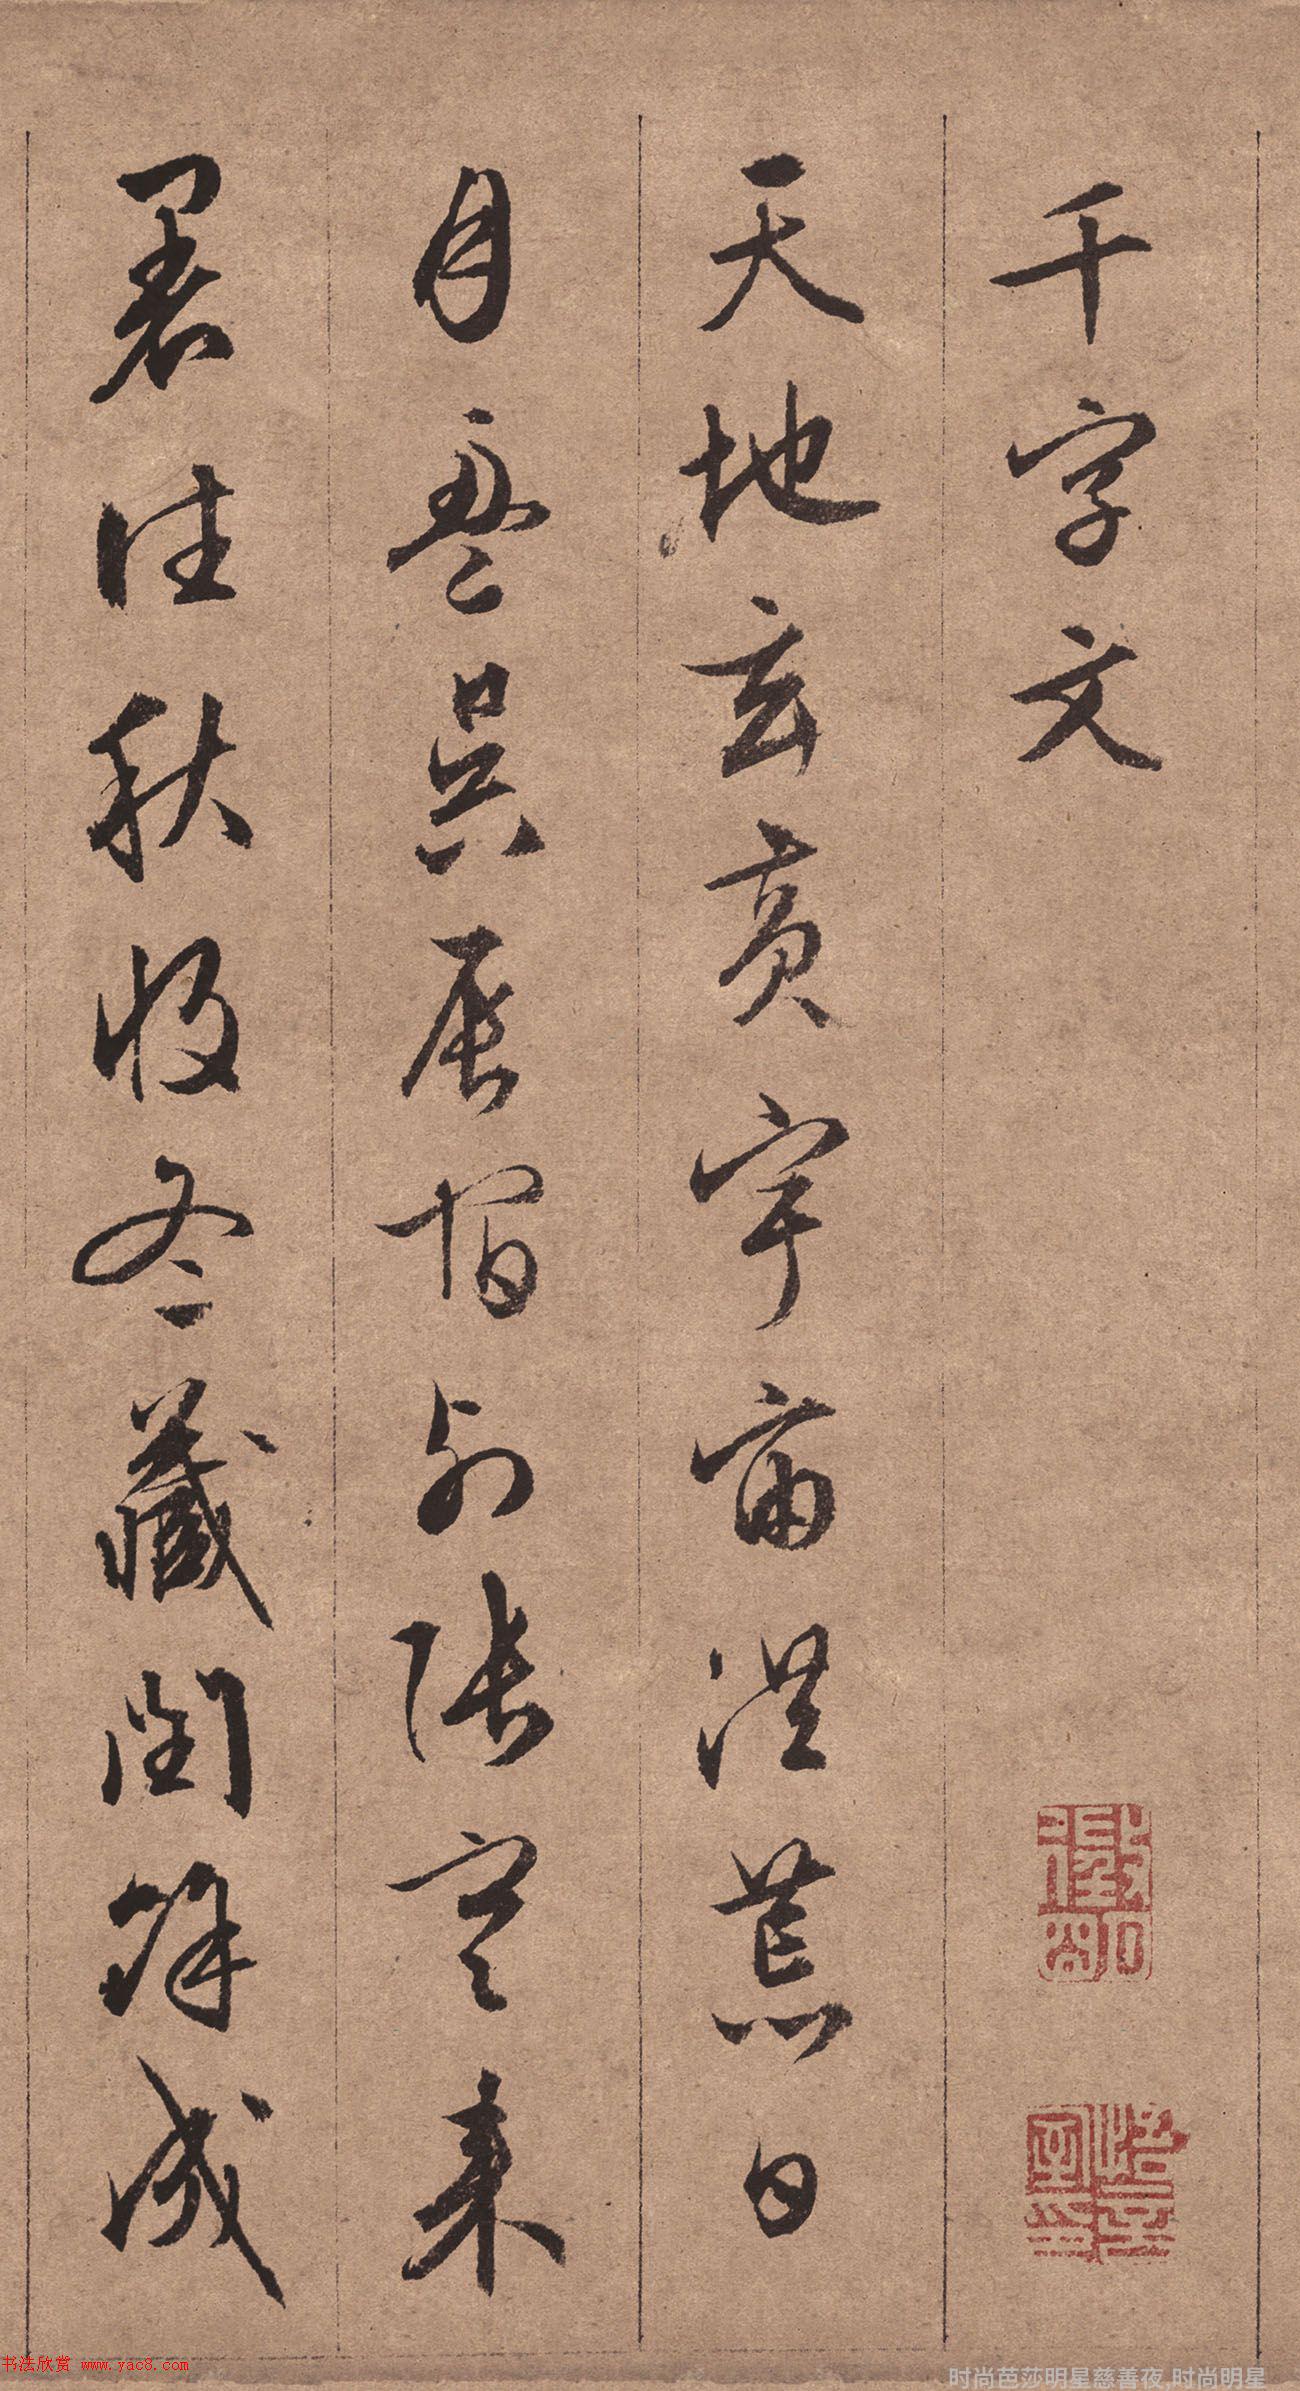 千字文
天地玄黃宇宙洪荒日
月盈昃辰宿列張寒來
暑往秋收冬藏閏餘成
书法欣赏 www.yac8.com
时尚芭莎明星慈善夜,时尚明星